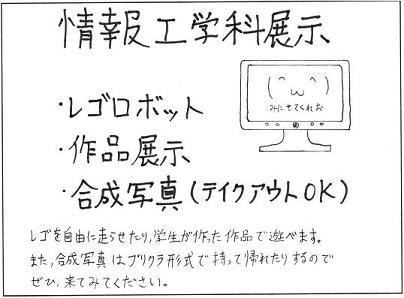 情報工学科展示
・レゴロボット
・作品展示
・合成写真(テイクアウトOK)
(^ω^)
みにきてくれお
レゴを自由に走らせたり,学生が作った作品で遊べます。
また,合成写真はプリクラ形式で持って帰れたりするので
ぜひ,来てみてください。